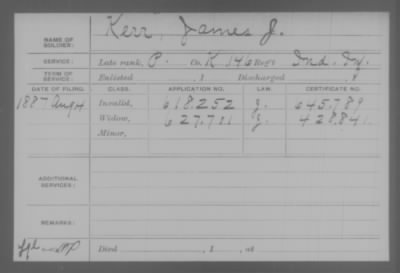 NAME OF SOLDIER: Kerr, James J.
SERVICE: Late rank, P. Co. K 146 Reg't Ind. Inf.
TERM OF SERVICE: Enlisted , 1 Discharged , 1
DATE OF FILING. CLASS. APPLICATION NO. LAW. CERTIFICATE NO.
1887 Aug 4 Invalid, 618.252 J. 645.789
Widow, 627.701 J. 428.841
Minor,
ADDITIONAL SERVICES:
REMARKS:
Died , 1 , at